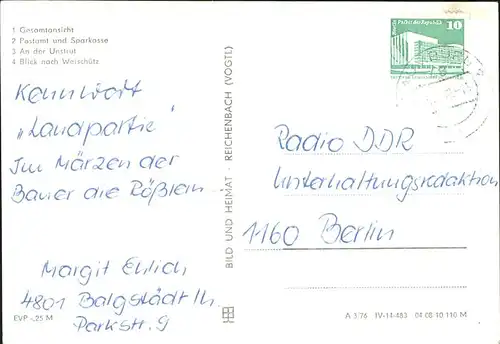 1 Gesamtansicht
2 Postamt und Sparkasse
3 An der Unstrut
4 Blick nach Weischütz
Kennwort
„Landpartie"
Im Märzen der
Bauer die Rößlein
Margit Ehlich
4801 Balgstädt
Parkstr. 9
EVP -,25 M
BILD UND HEIMAT · REICHENBACH (VOGTL)
Palast der Republik
10
Radio DDR
Unterhaltungsredaktion
1160 Berlin
A 3/76 IV-14-483 04 08 10 110 M